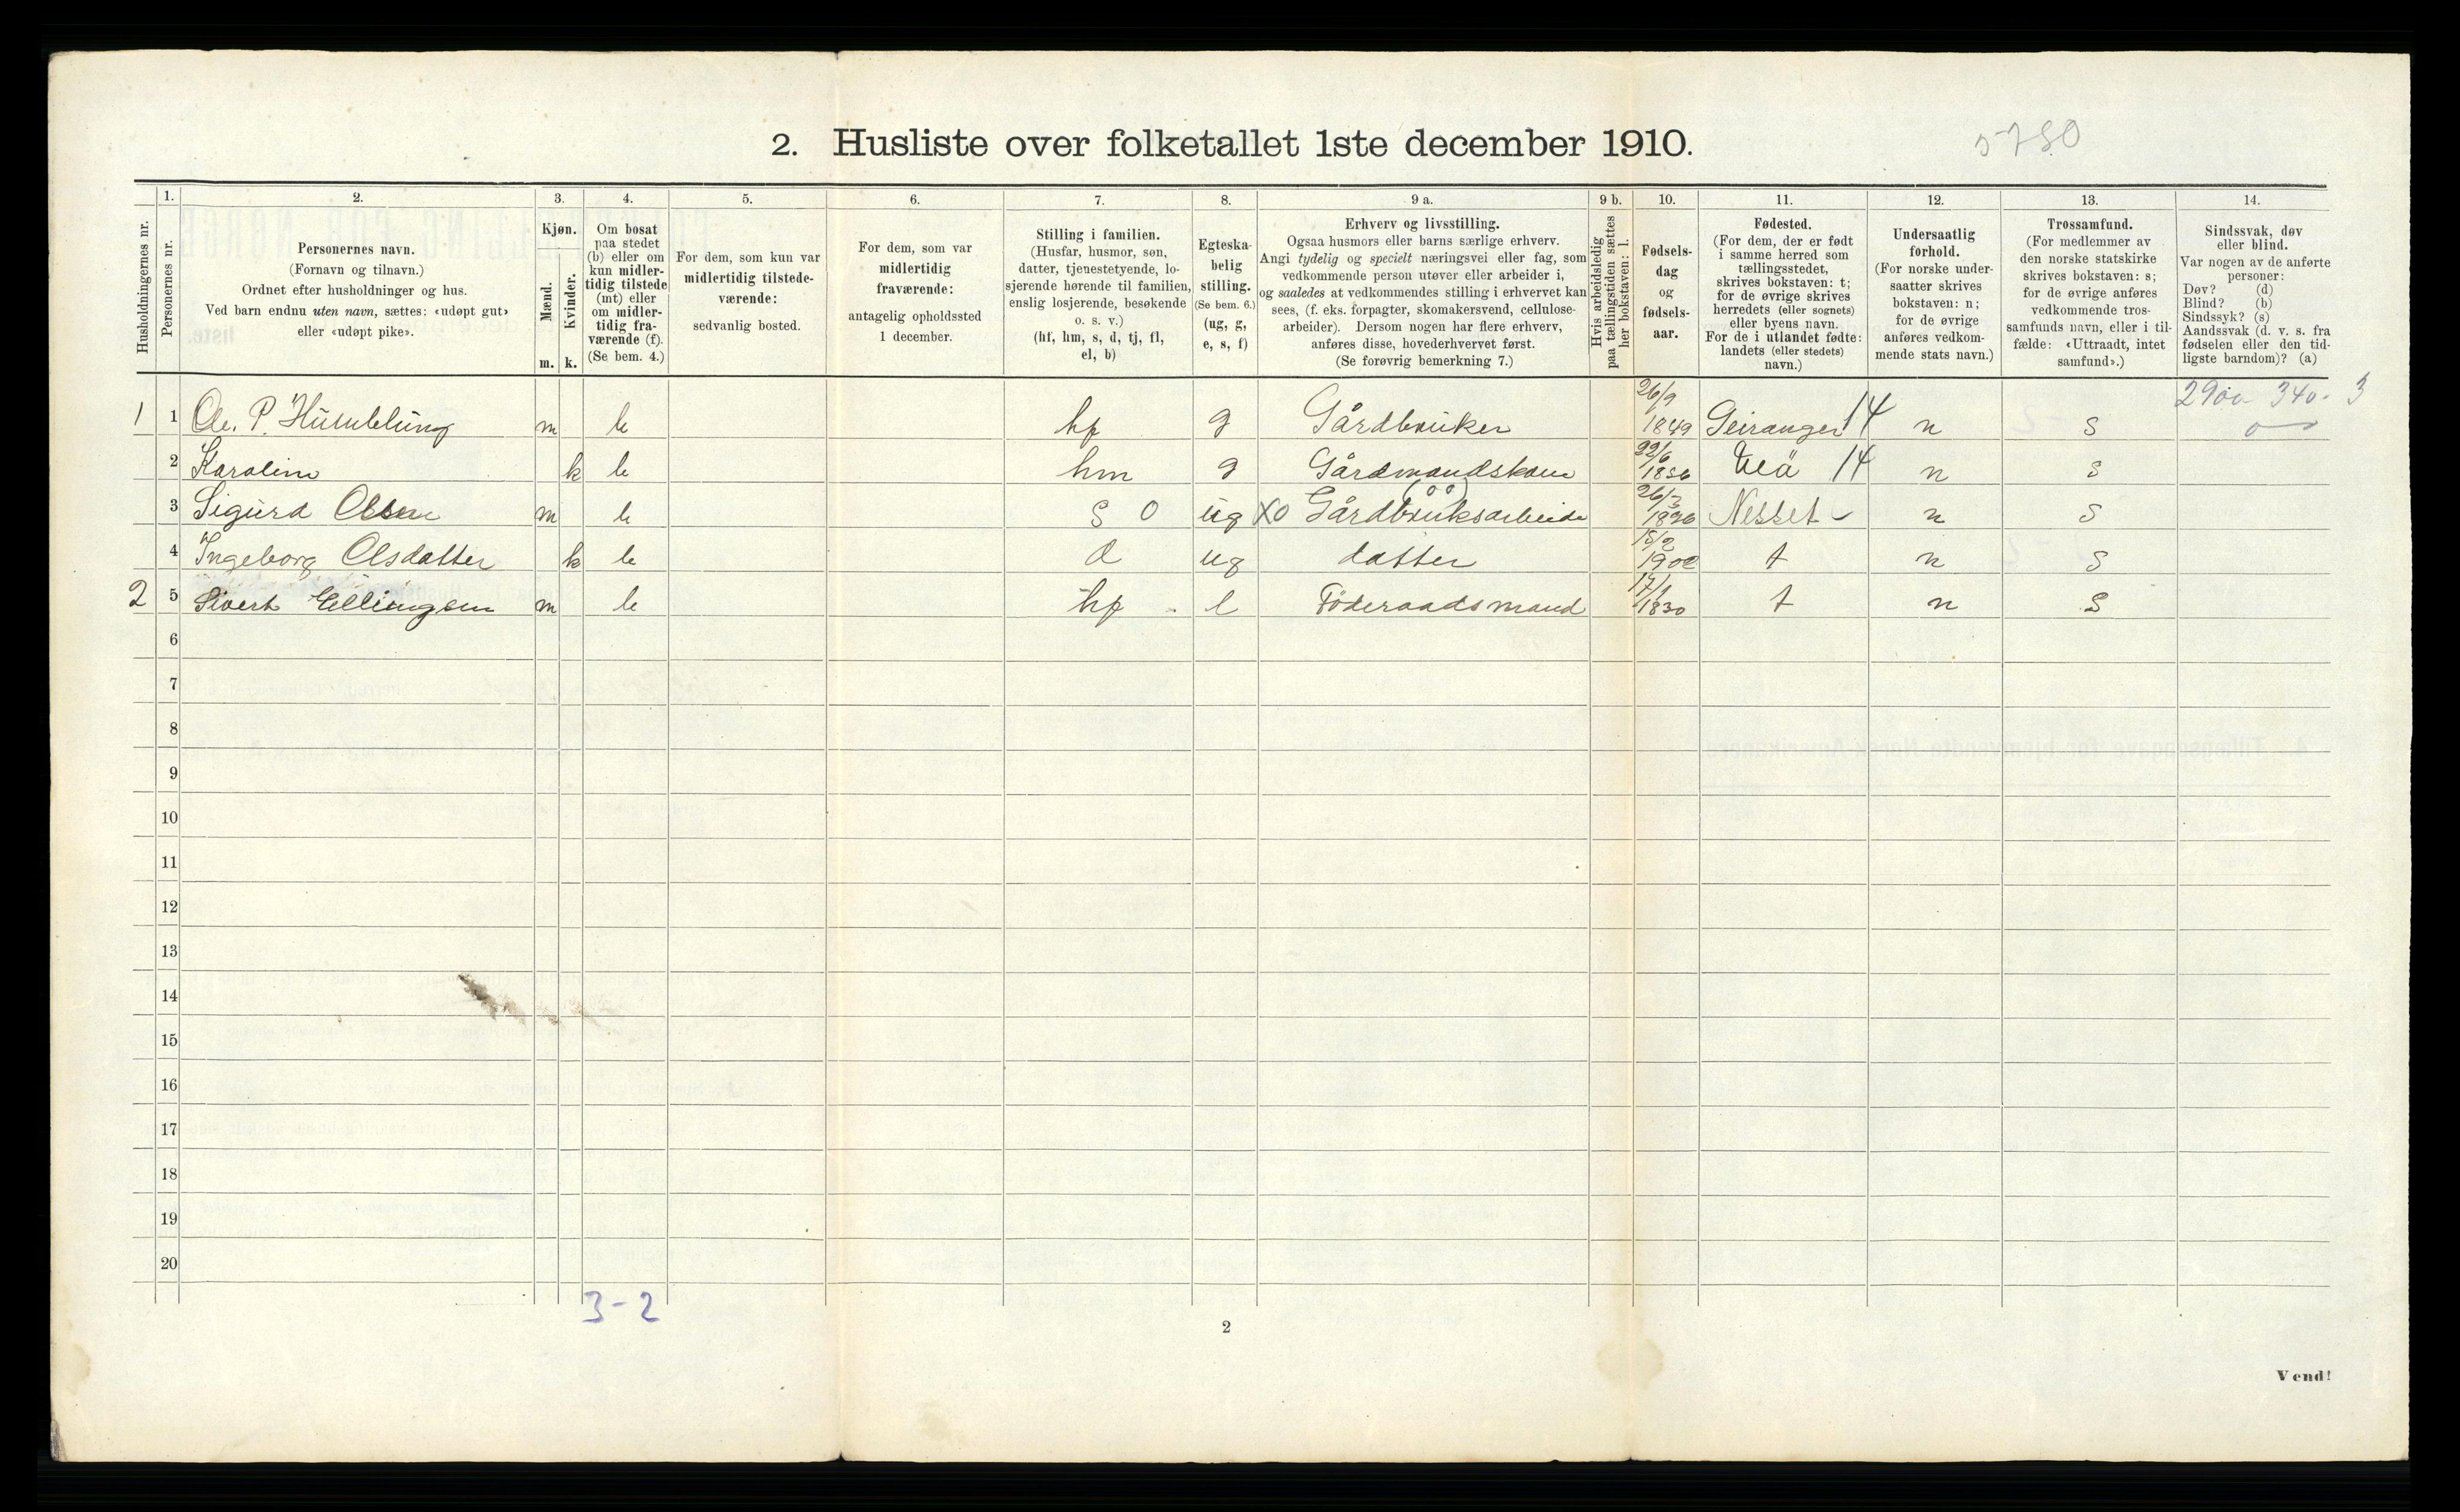 2. Husliste over folketallet 1ste december 1910.
5780
Husholdningernes nr.
1.
Personernes nr.
2.
Personernes navn.
(Fornavn og tilnavn.)
Ordnet efter husholdninger og hus.
Ved barn endnu uten navn, sættes: «udøpt gut»
eller «udøpt pike».
3.
Kjøn.
Mænd.
Kvinder.
m. k.
4.
Om bosat
paa stedet
(b) eller om
kun midler-
tidig tilstede
(mt) eller
om midler-
tidig fra-
værende (f).
(Se bem. 4.)
5.
For dem, som kun var
midlertidig tilstede-
værende:
sedvanlig bosted.
6.
For dem, som var
midlertidig
fraværende:
antagelig opholdssted
1 december.
7.
Stilling i familien.
(Husfar, husmor, søn,
datter, tjenestetyende, lo-
sjerende hørende til familien,
enslig losjerende, besøkende
o. s. v.)
(hf, hm, s, d, tj, fl,
el, b)
8.
Egteska-
belig
stilling.
(Se bem. 6.)
(ug, g,
e, s, f)
9 a.
Erhverv og livsstilling.
Ogsaa husmors eller barns særlige erhverv.
Angi tydelig og specielt næringsvei eller fag, som
vedkommende person utøver eller arbeider i,
og saaledes at vedkommendes stilling i erhvervet kan
sees, (f. eks. forpagter, skomakersvend, cellulose-
arbeider). Dersom nogen har flere erhverv,
anføres disse, hovederhvervet først.
(Se forøvrig bemerkning 7.)
9 b.
Hvis arbeidsledig
paa tællingstiden sættes
her bokstaven: l.
10.
Fødsels-
dag
og
fødsels-
aar.
11.
Fødested.
(For dem, der er født
i samme herred som
tællingsstedet,
skrives bokstaven: t;
for de øvrige skrives
herredets (eller sognets)
eller byens navn.
For de i utlandet fødte:
landets (eller stedets)
navn.)
12.
Undersaatlig
forhold.
(For norske under-
saatter skrives
bokstaven: n;
for de øvrige
anføres vedkom-
mende stats navn.)
13.
Trossamfund.
(For medlemmer av
den norske statskirke
skrives bokstaven: s;
for de øvrige anføres
vedkommende tros-
samfunds navn, eller i til-
fælde: «Uttraadt, intet
samfund».)
14.
Sindssvak, døv
eller blind.
Var nogen av de anførte
personer:
Døv? (d)
Blind? (b)
Sindssyk? (s)
Aandssvak (d. v. s. fra
fødselen eller den tid-
ligste barndom)? (a)
1 1 Ole. P. Humblung m b hf g Gårdbruker 26/9 1849 Geiranger 14 n s 2900 340. 3
2 Karolina k b hm g Gårdmandskone 22/6 1856 Veö 14 n s
3 Sigurd Olsen m b s O ug XO Gårdbruksarbeide 26/3 1896 Nesset n s
4 Ingeborg Olsdatter k b d ug datter 15/2 1902 t n s
2 5 Sivert Ellingsen m b hf e Föderaadsmand 17/1 1830 t n s
6
7
8
9
10
11
12
13
14
15
16
17
18
19
20
3-2
2
Vend!